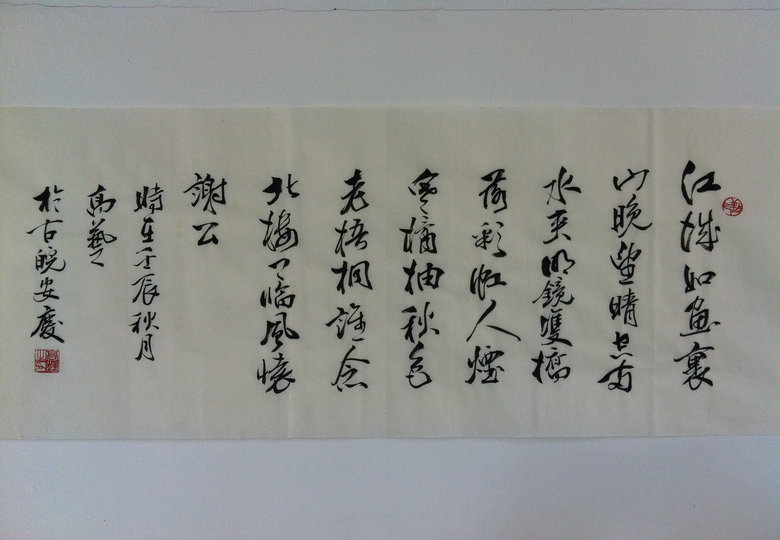 江城如畫裏
山晚望晴空兩
水夾明鏡雙橋
落彩虹人煙
寒橘柚秋色
老梧桐誰念
北樓上臨風懷
謝公
時在壬辰秋月
高藝
於古皖安慶